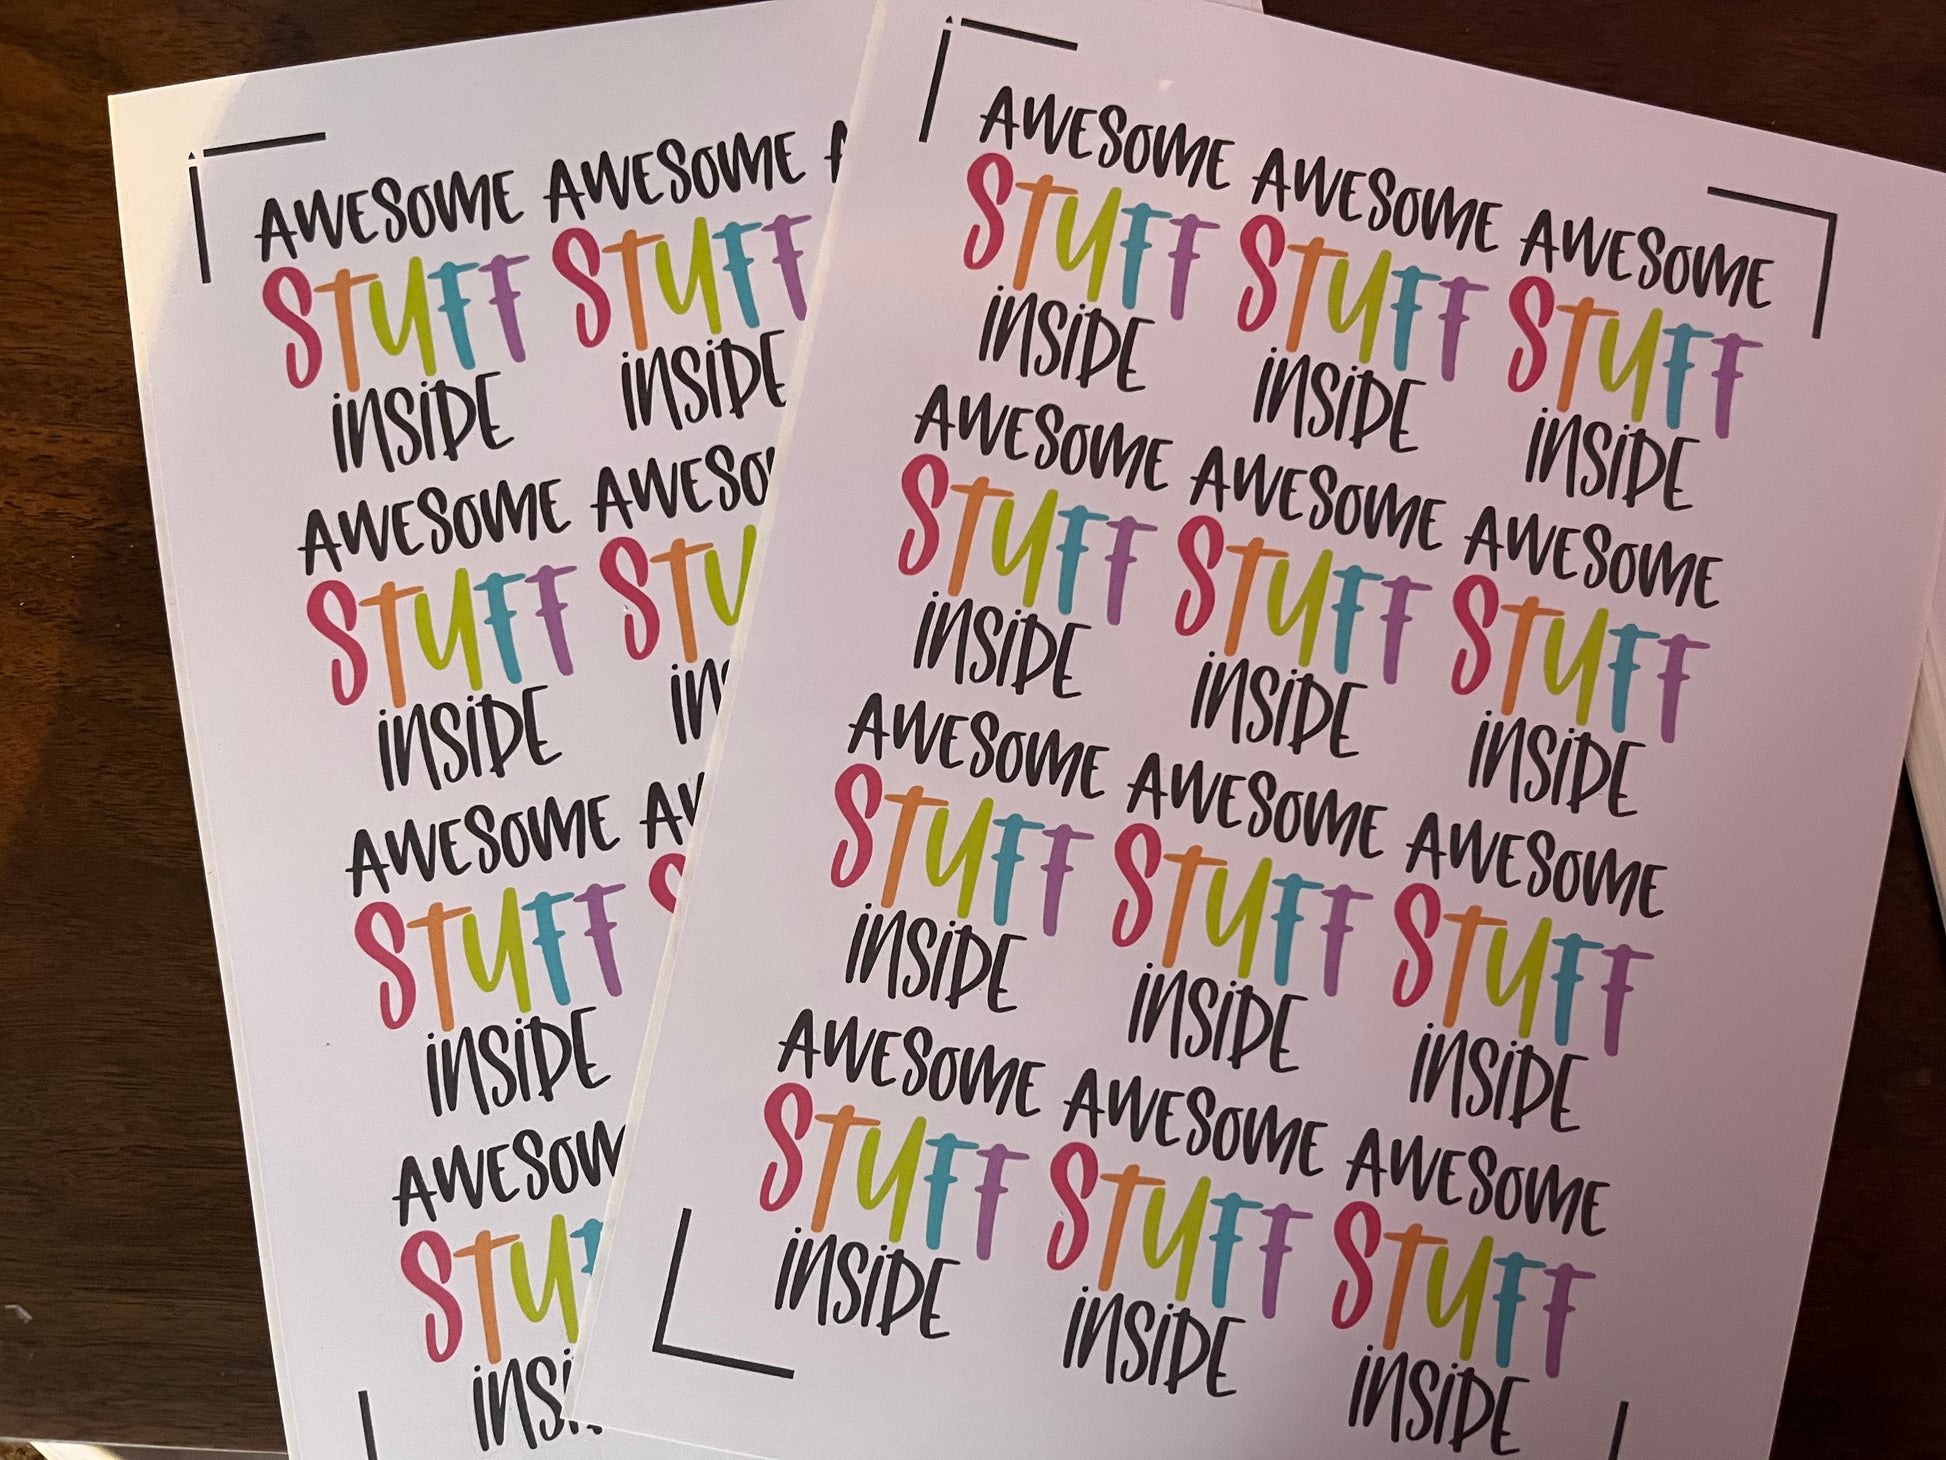 AWESOME AWESOME
STUFF STUFF
iNSiDE iNSiDE
AWESOME AWESO
STUFF STU
iNSiDE iN
AWESOME AW
STUFF S
iNSiDE
AWESOM
STUF
iNSi
AWESOME AWESOME AWESOME
STUFF STUFF STUFF
iNSiDE iNSiDE iNSiDE
AWESOME AWESOME AWESOME
STUFF STUFF STUFF
iNSiDE iNSiDE iNSiDE
AWESOME AWESOME AWESOME
STUFF STUFF STUFF
iNSiDE iNSiDE iNSiDE
AWESOME AWESOME AWESOME
STUFF STUFF STUFF
iNSiDE iNSiDE iNSiDE